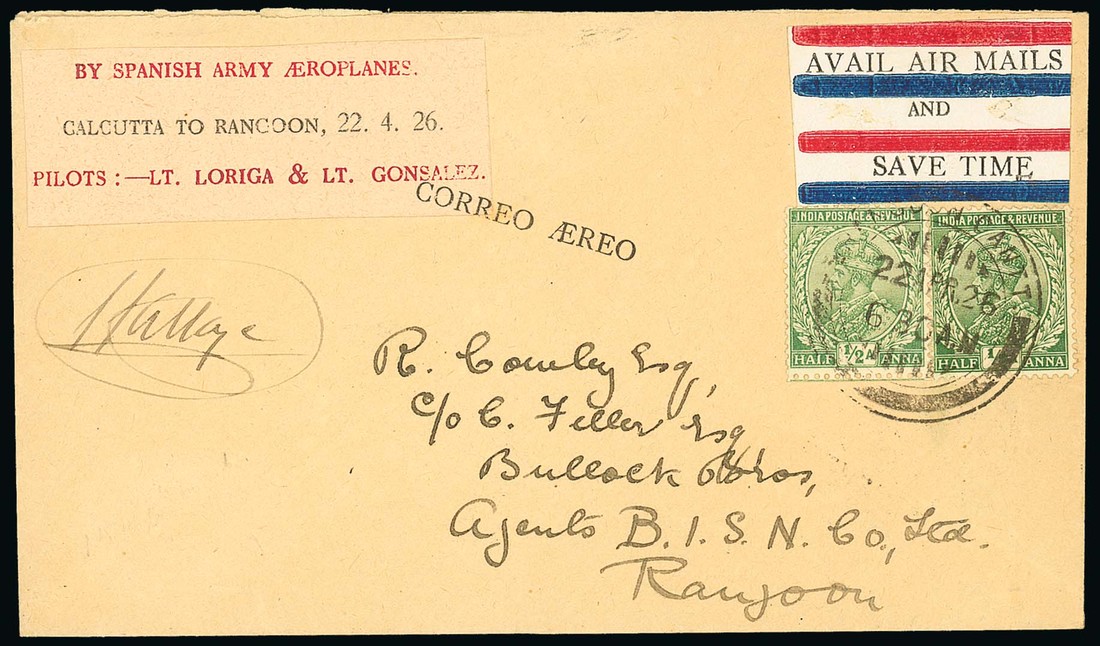 BY SPANISH ARMY ÆROPLANES.
CALCUTTA TO RANGOON, 22. 4. 26.
PILOTS :—LT. LORIGA & LT. GONSALEZ.
CORREO ÆREO
AVAIL AIR MAILS
AND
SAVE TIME
INDIA POSTAGE & REVENUE
½
HALF ANNA
INDIA POSTAGE & REVENUE
HALF ANNA
22 APR. 26
6·30 AM
R. Comley Esq,
c/o C. Feller Esq
Bullock Bros,
Agents B. I. S. N. Co, Ltd.
Rangoon